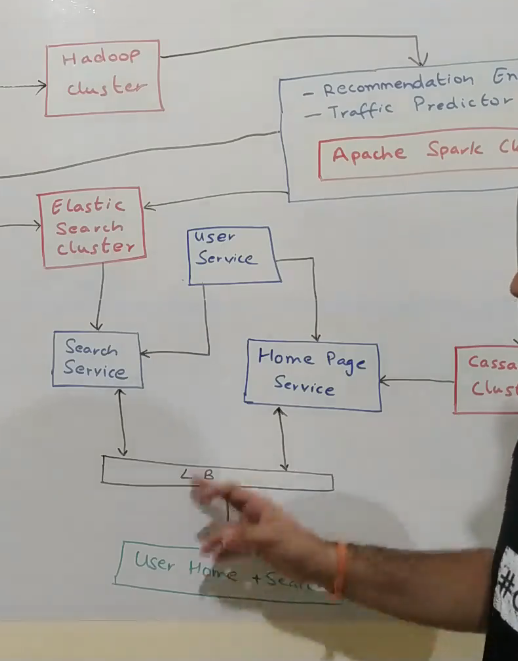 Hadoop
cluster
- Recommendation
- Traffic Predictor
Apache Spark
Elastic
Search
cluster
User
Service
Search
Service
Home Page
Service
LB
User Home +